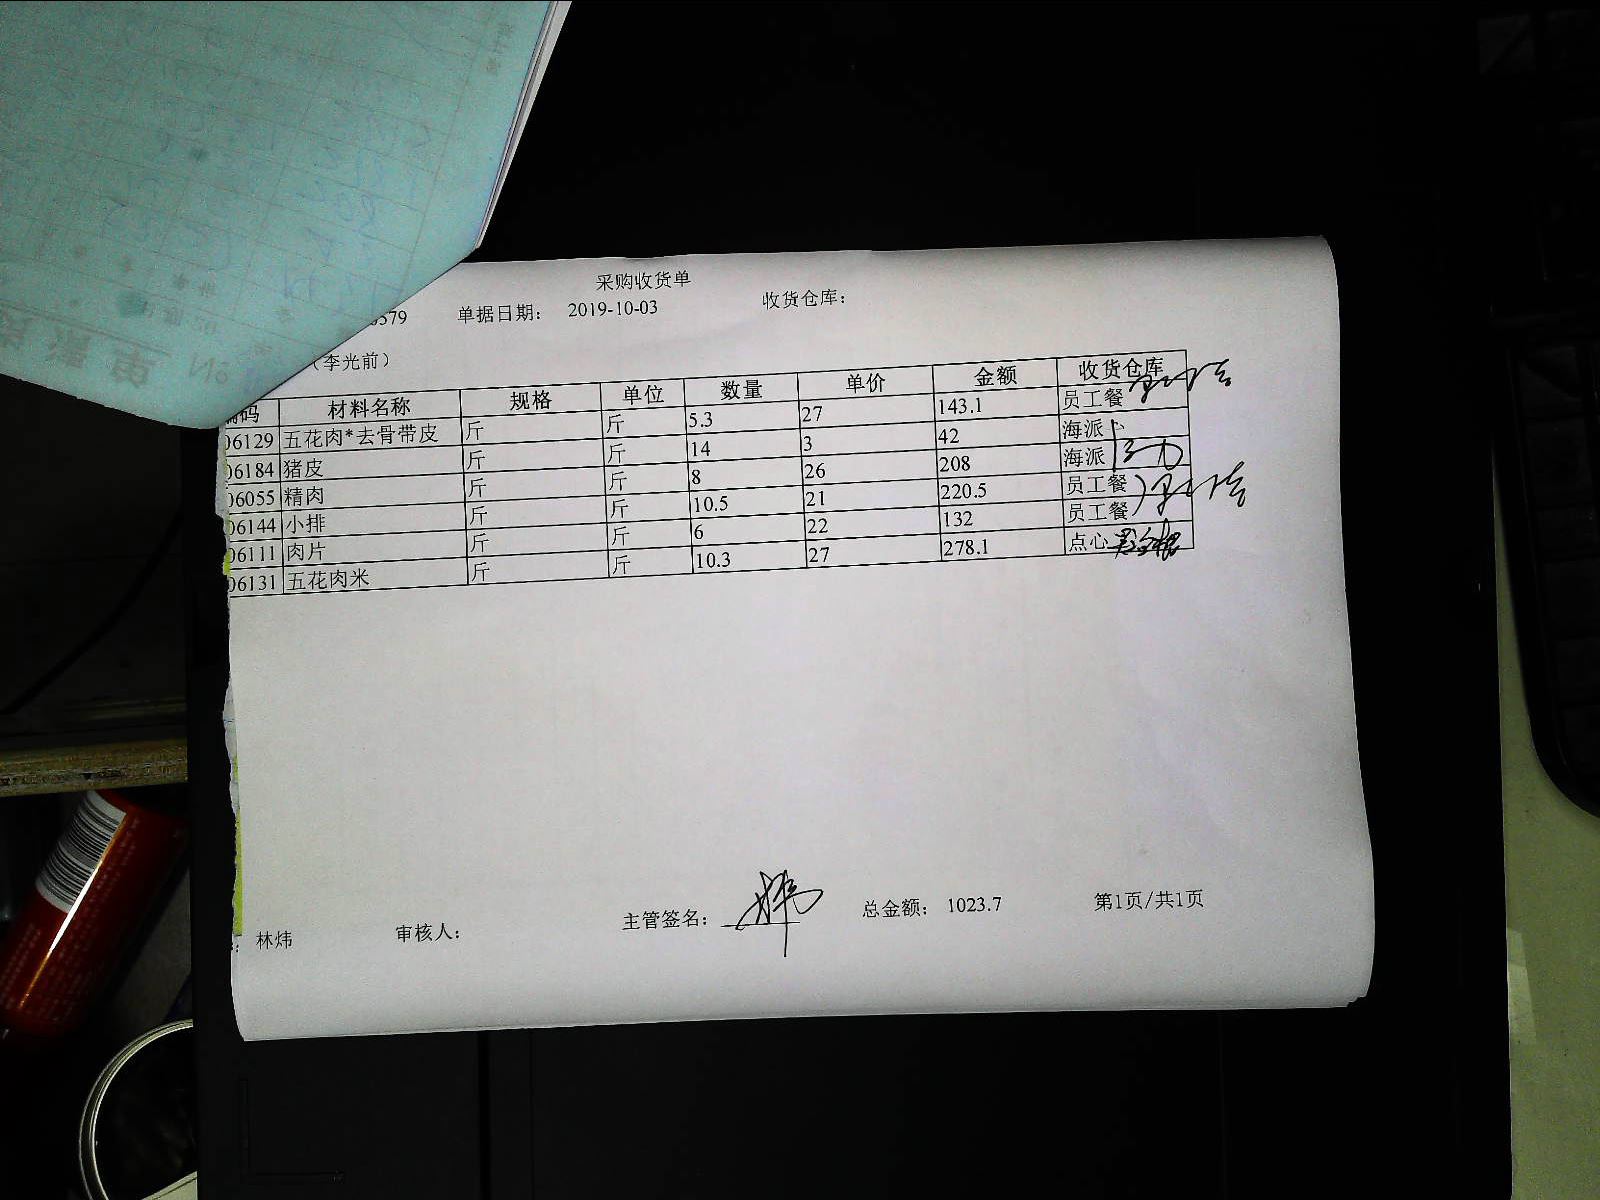 采购收货单
579 单据日期: 2019-10-03 收货仓库:
(李光前)
编码 材料名称 规格 单位 数量 单价 金额 收货仓库
06129 五花肉*去骨带皮 斤 斤 5.3 27 143.1 员工餐
06184 猪皮 斤 斤 14 3 42 海派
06055 精肉 斤 斤 8 26 208 海派
06144 小排 斤 斤 10.5 21 220.5 员工餐
06111 肉片 斤 斤 6 22 132 员工餐
06131 五花肉米 斤 斤 10.3 27 278.1 点心
林炜 审核人: 主管签名: 总金额: 1023.7 第1页/共1页